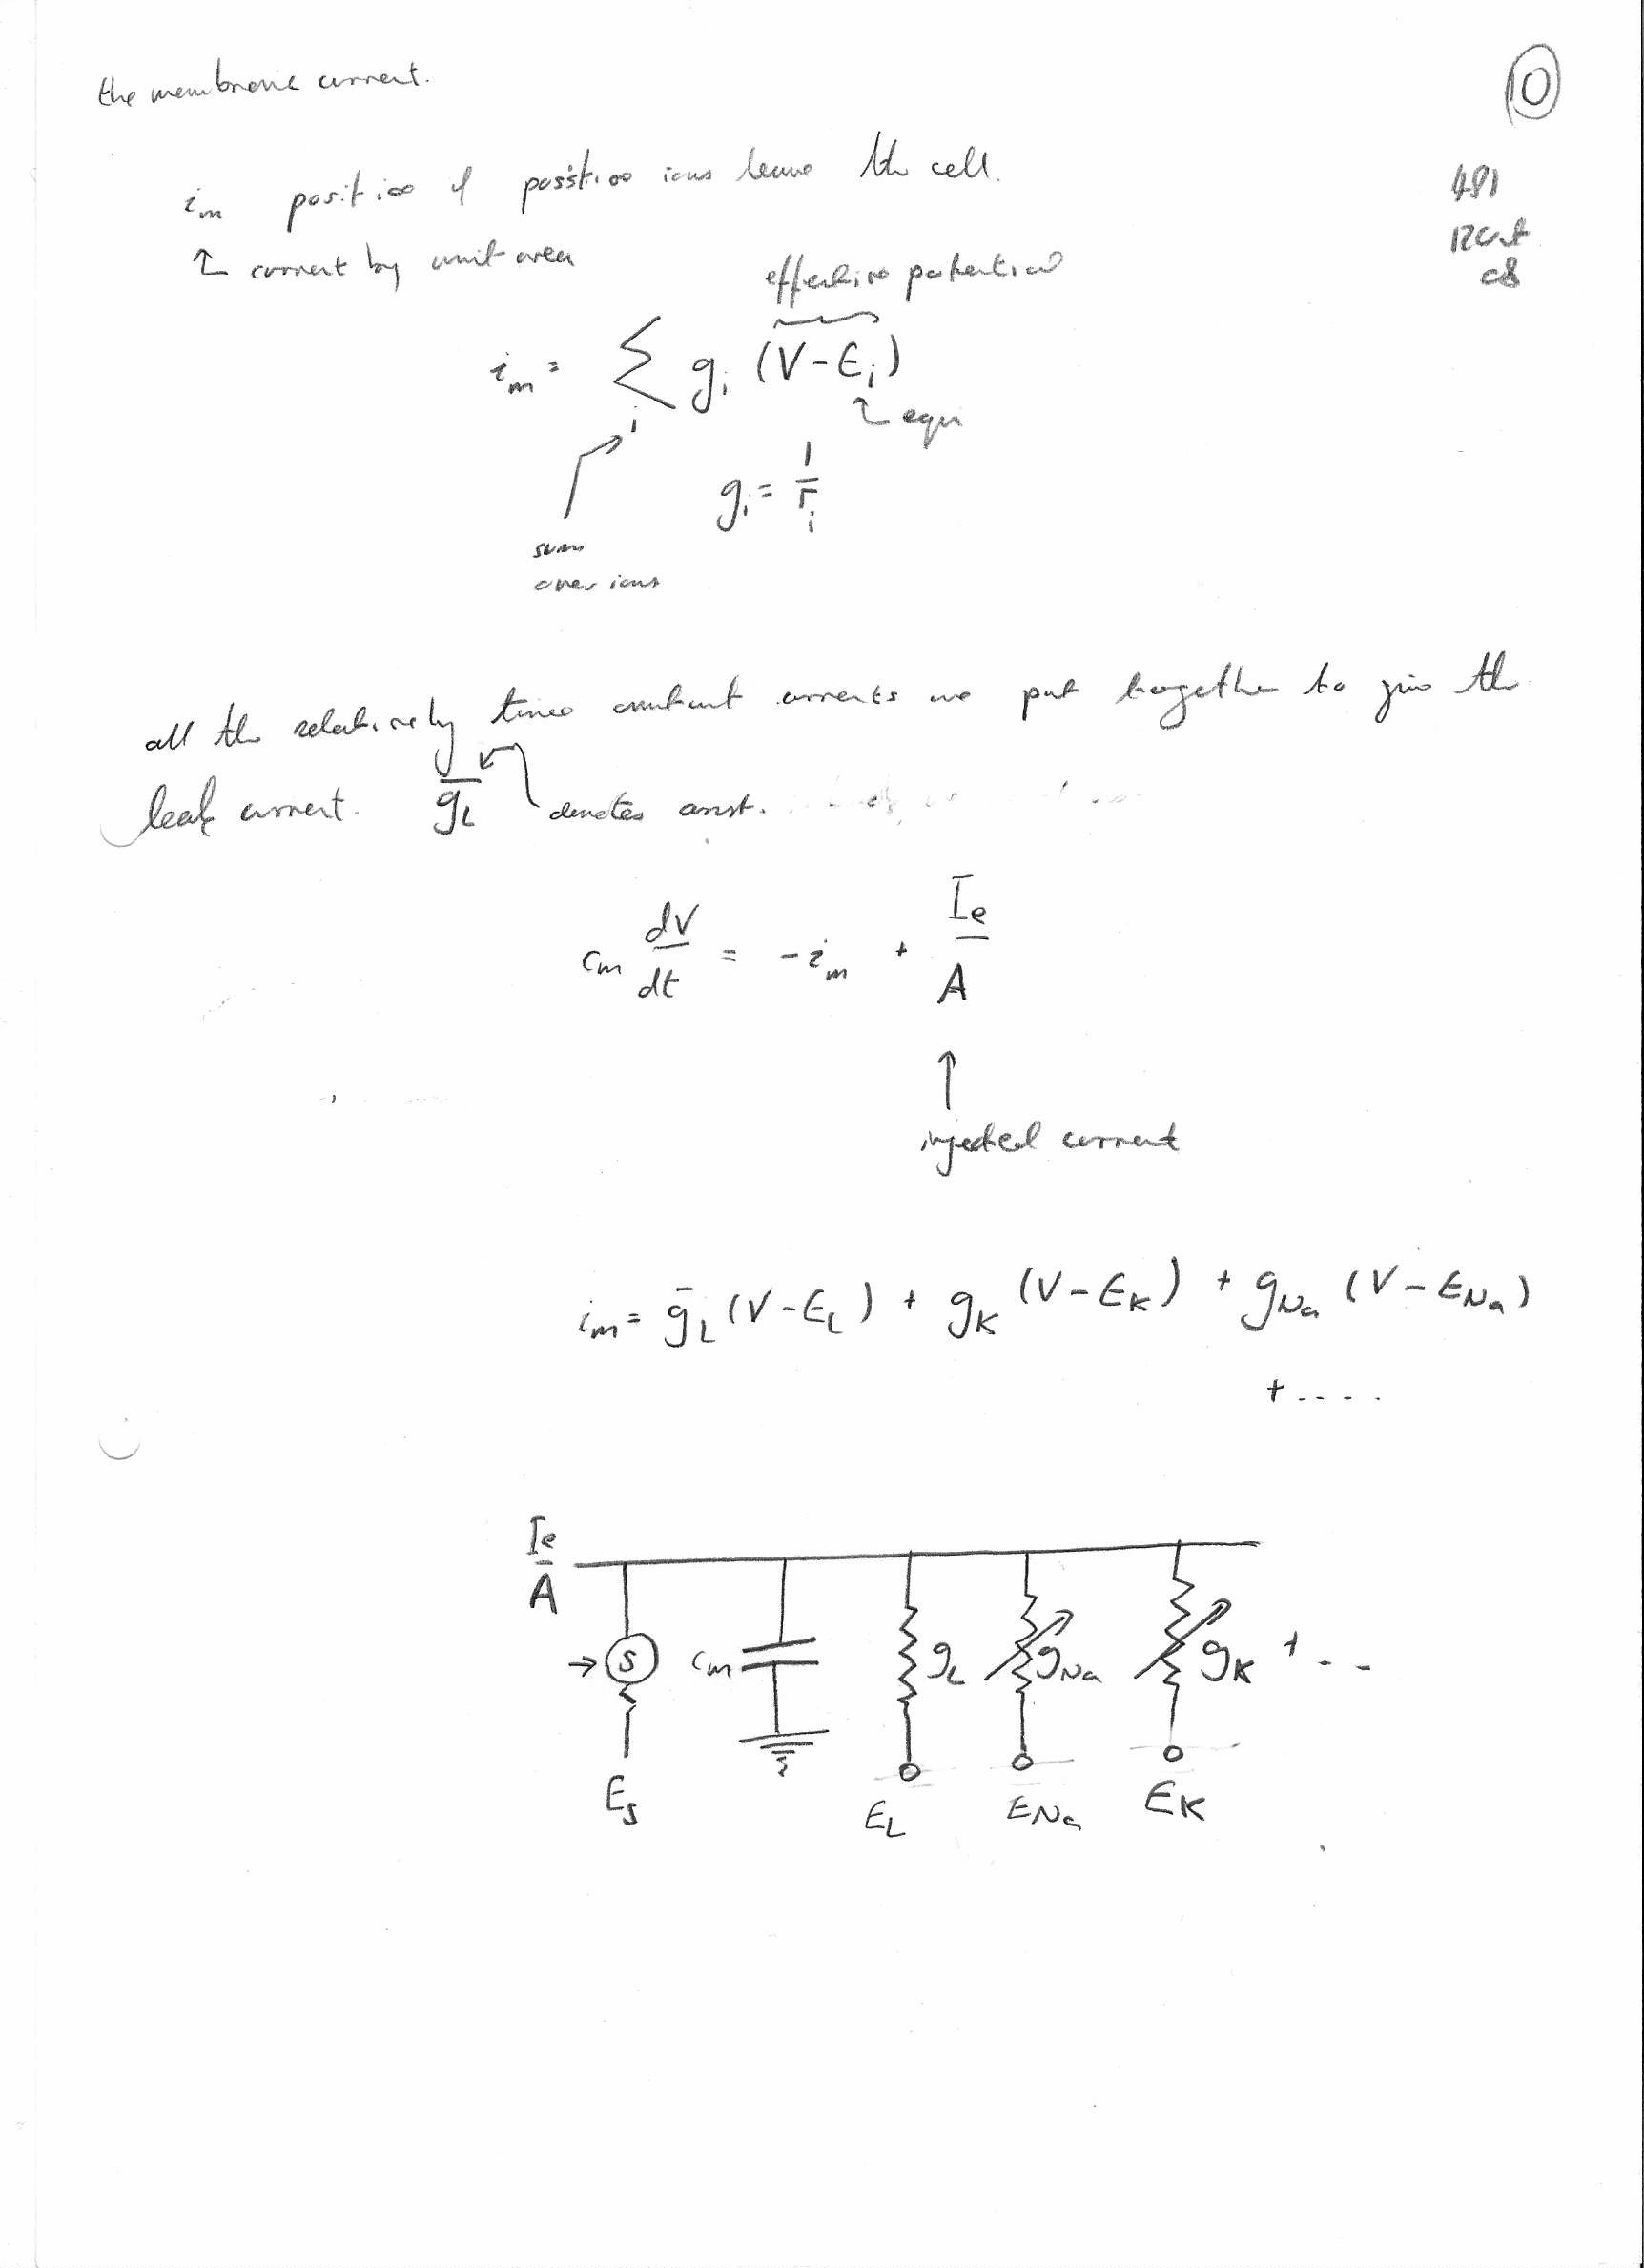 the membrane current.
10
481
12 Oct
08
i_m positive if positive ions leave the cell.
↑ current by unit area
effective potential
i_m = Σ_i g_i (V - E_i)
↑ equi
g_i = 1/r_i
sum
over ions
all the relatively time constant currents are put together to give the
leak current. \bar{g}_L denotes const.
c_m dV/dt = -i_m + I_e/A
↑
injected current
i_m = \bar{g}_L (V - E_L) + g_K (V - E_K) + g_Na (V - E_Na)
+ ....
I_e/A
→ S c_m g_L g_Na g_K + ...
E_s E_L E_Na E_K